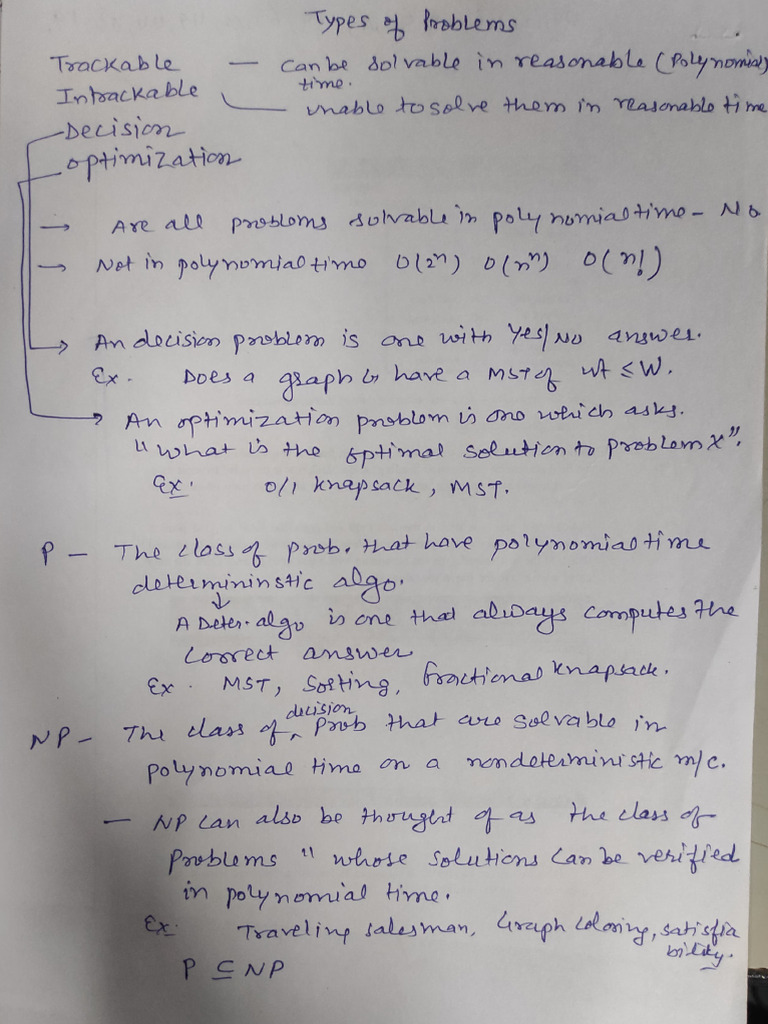 Types of Problems
Trackable — can be solvable in reasonable (Polynomial) time.
Intrackable — unable to solve them in reasonable time
Decision
optimization
→ Are all problems solvable in polynomial time - No
→ Not in polynomial time O(2ⁿ) O(nⁿ) O(n!)
→ An decision problem is one with Yes/No answer.
Ex. Does a graph G have a MST of wt ≤ W.
→ An optimization problem is one which asks.
"what is the optimal solution to problem X".
Ex. 0/1 knapsack, MST.
P - The class of prob. that have polynomial time
determininstic algo.
↓
A Deter. algo is one that always computes the
correct answer
Ex. MST, Sorting, fractional knapsack.
NP - The class of decision prob that are solvable in
polynomial time on a nondeterministic m/c.
- NP can also be thought of as the class of
problems " whose solutions can be verified
in polynomial time.
Ex. Traveling salesman, Graph coloring, satisfia
bility.
P ⊆ NP